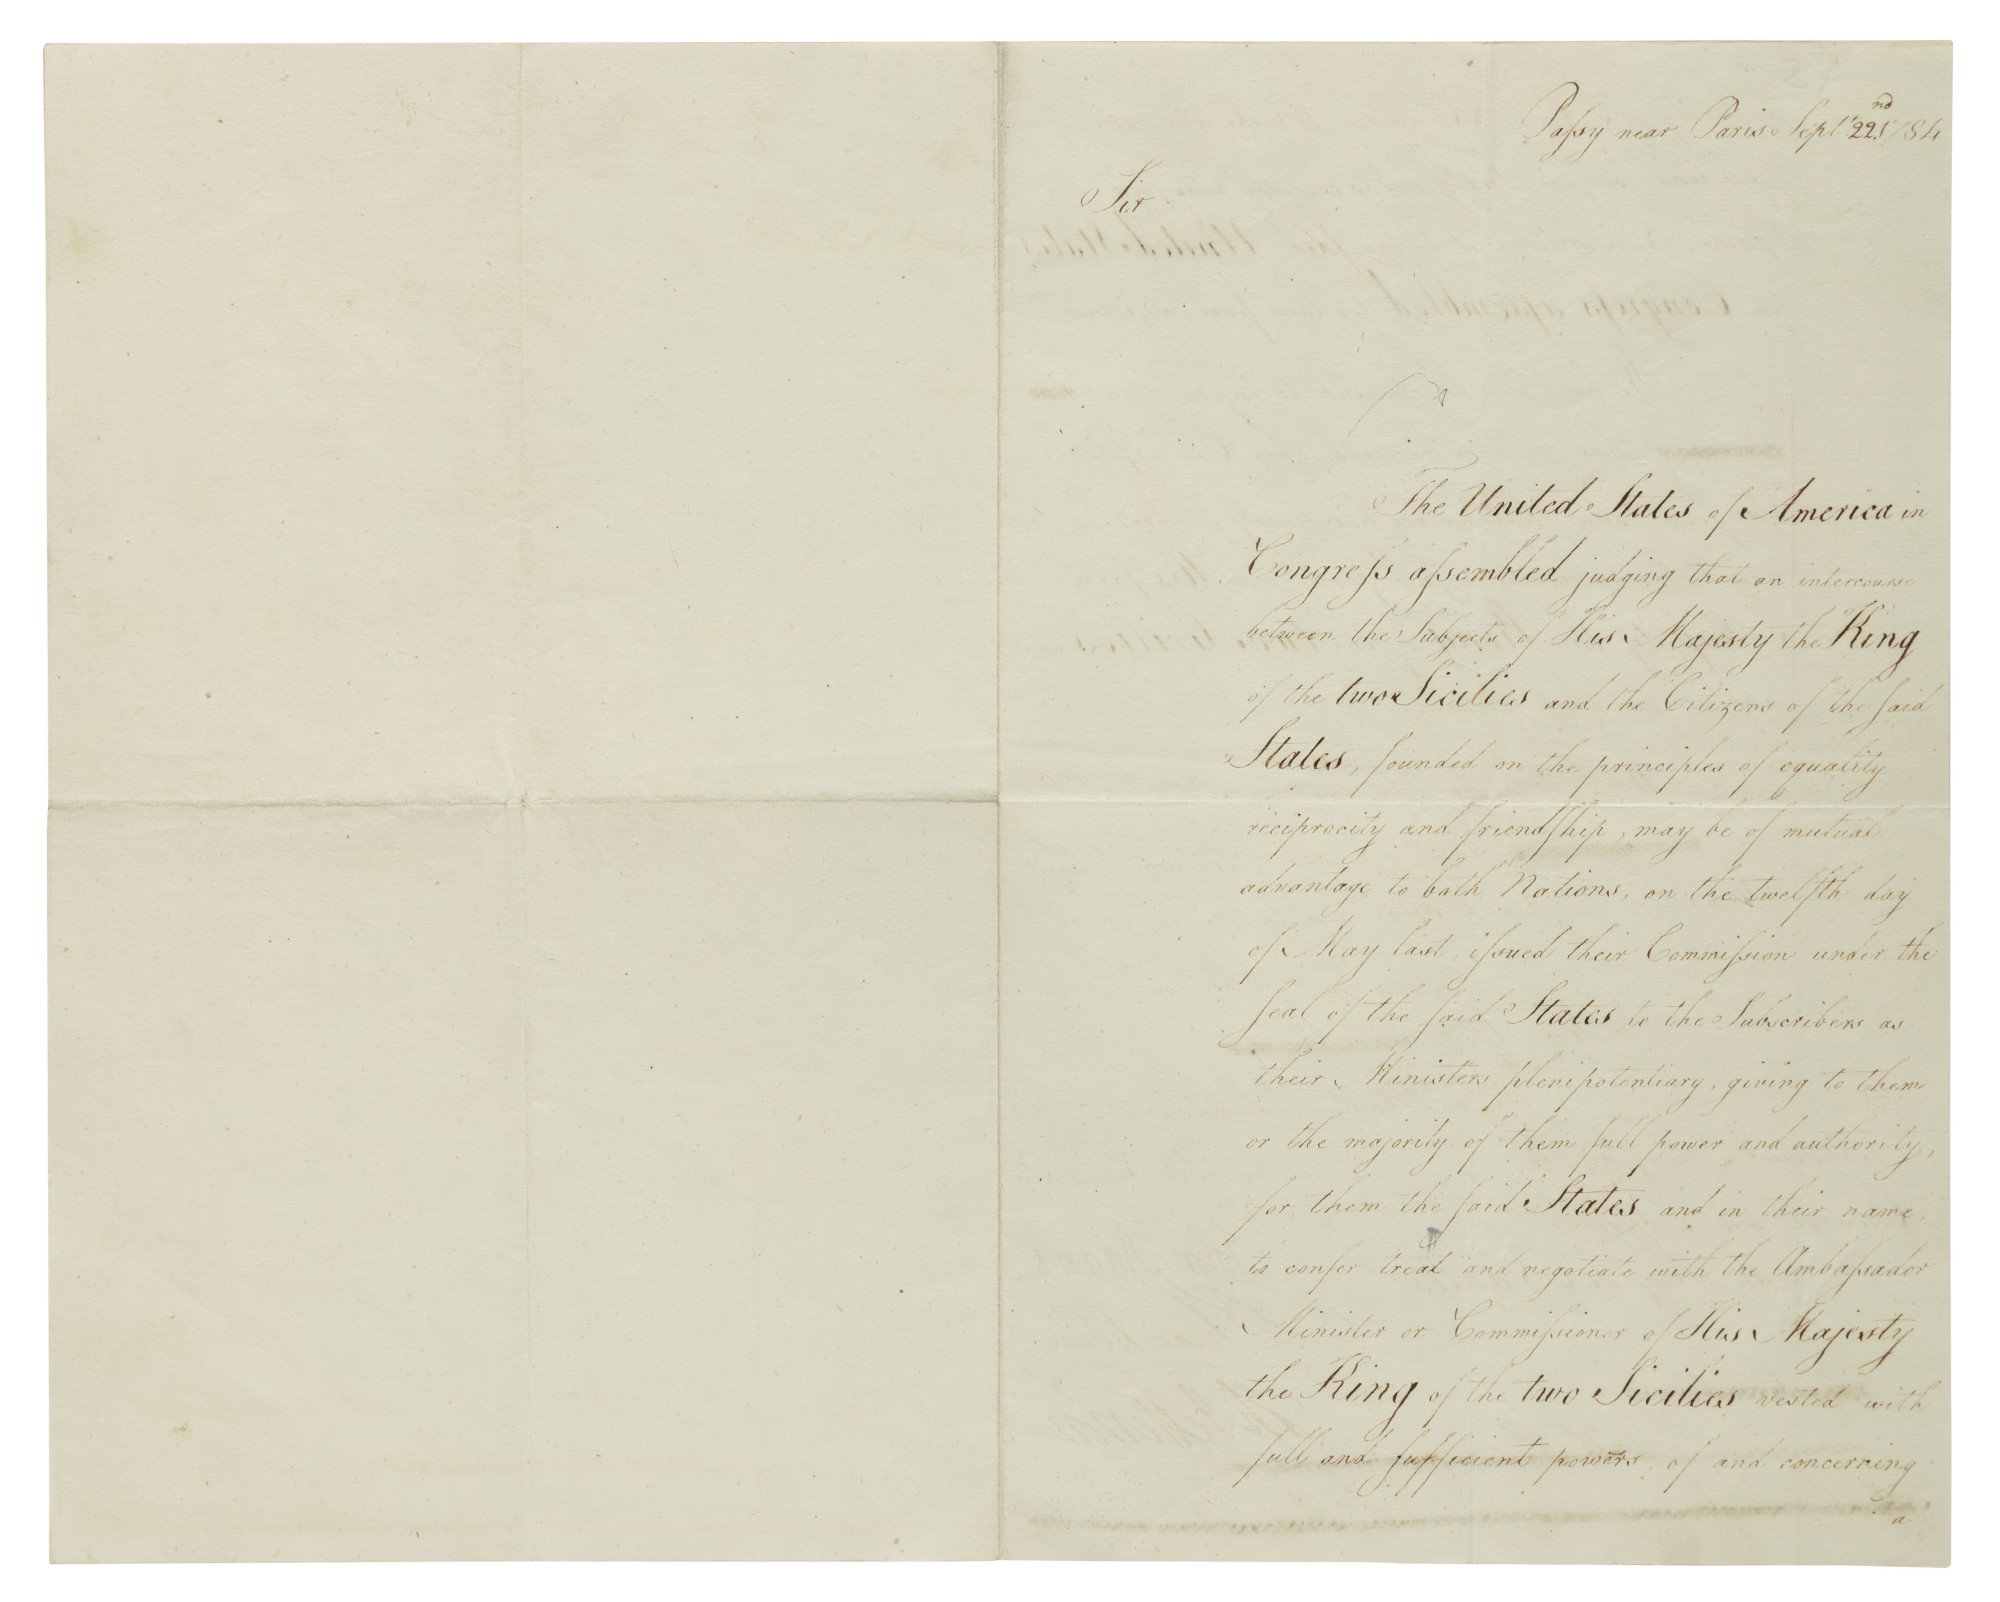 Passy near Paris Sept.r 22.nd 1784
Sir
The United States of America in
Congress assembled judging that an intercourse
between the Subjects of His Majesty the King
of the two Sicilies and the Citizens of the said
States, founded on the principles of equality
reciprocity and friendship, may be of mutual
advantage to both Nations, on the twelfth day
of May last, issued their Commission under the
seal of the said States to the Subscribers as
their Ministers plenipotentiary, giving to them
or the majority of them full power and authority,
for them the said States and in their name,
to confer treat and negotiate with the Ambassador
Minister or Commissioner of His Majesty
the King of the two Sicilies vested with
full and sufficient powers of and concerning
a